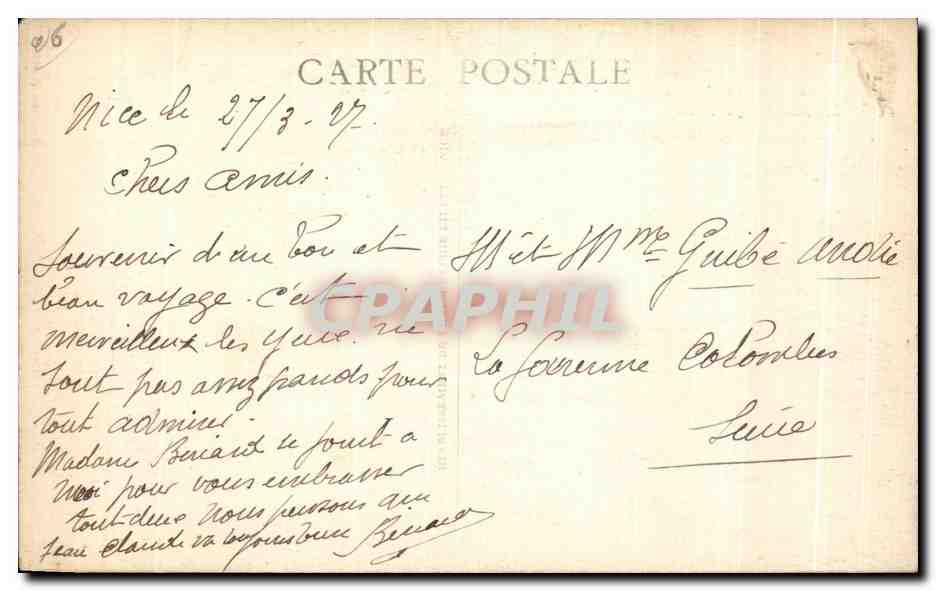 26
CARTE POSTALE
Nice le 27/3-27.
Chers amis.
Souvenir d'un bon et
beau voyage. c'est
merveilleux les yeux ne
sont pas assez grands pour
tout admirer.
Madame Benard se joint a
moi pour vous embrasser
tout deux nous pensons que
Jean Claude va toujours bien Benard
M et Mme Guibé André
La Garenne Colombes
Seine
CPAPHIL